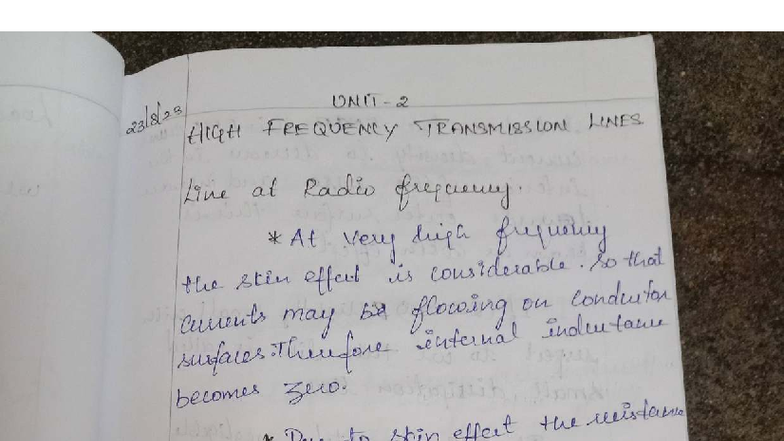 UNIT-2
23/8/23
HIGH FREQUENCY TRANSMISSION LINES
Line at Radio frequency.
* At very high frequency
the skin effect is considerable. So that
currents may be flowing on conductor
surfaces. Therefore internal inductance
becomes zero.
* Due to skin effect the resistance